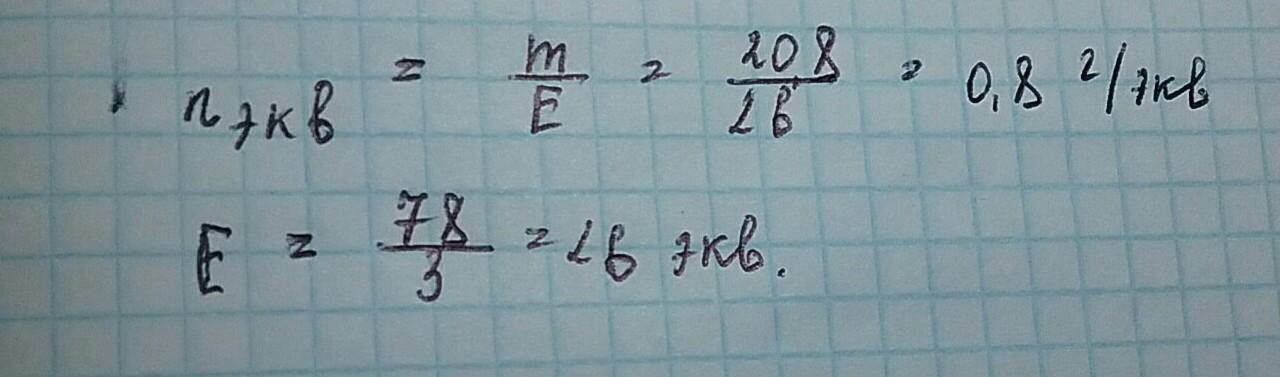 n экв = m/E = 20 8/26 = 0,8 г/экв
E = 78/3 = 26 экв.